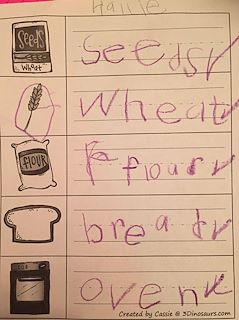 Seeds
Wheat
seeds
wheat
FLOUR
F flour
bread
oven
Created by Cassie @ 3Dinosaurs.com